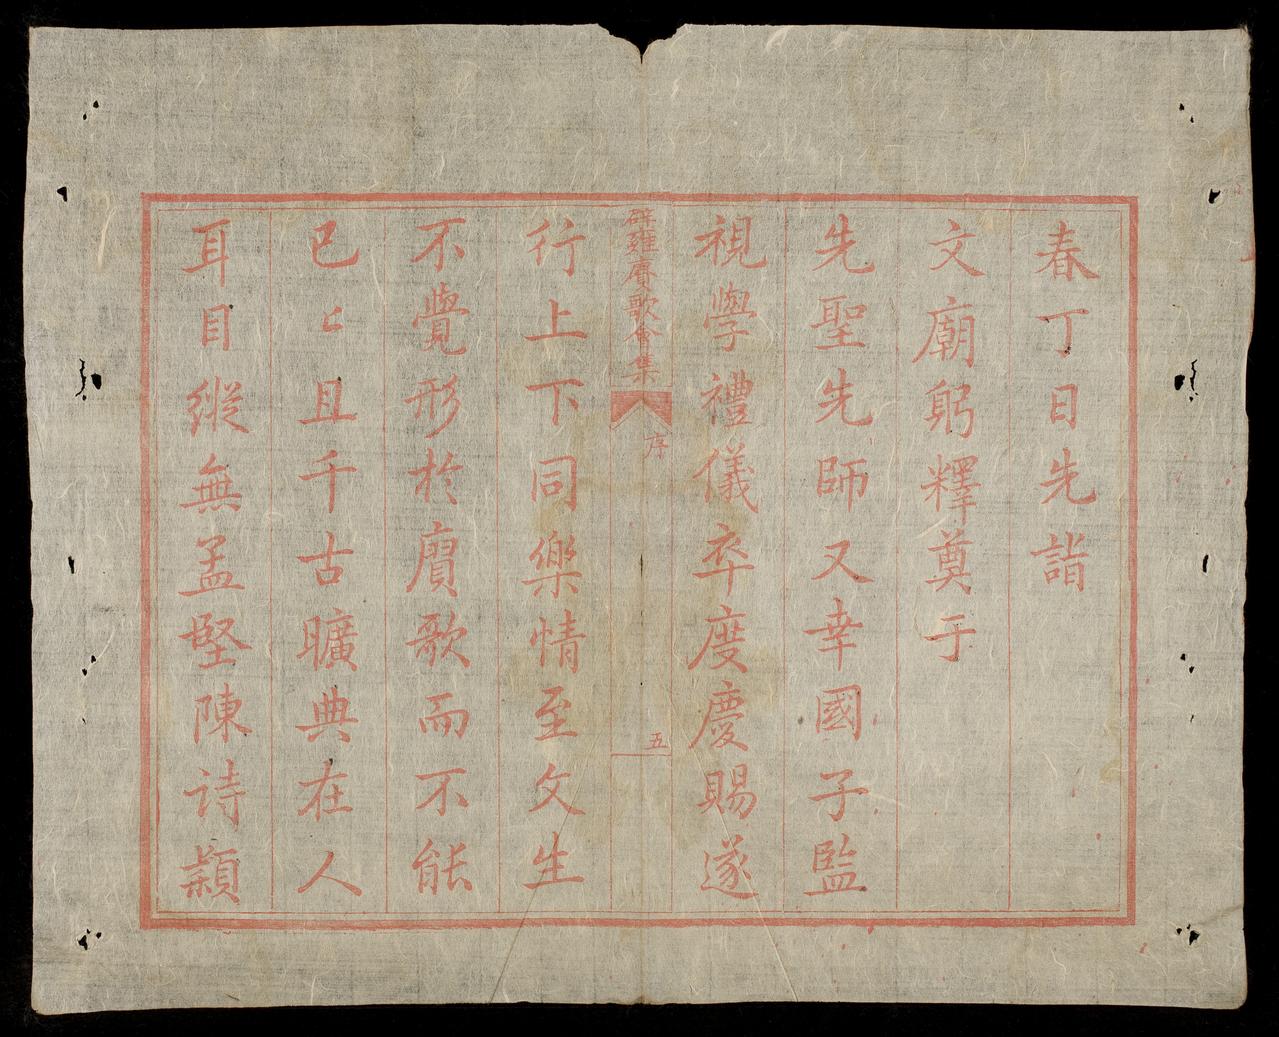 春丁日先詣
文廟躬釋奠于
先聖先師又幸國子監
視學禮儀卒度慶賜遂
辟雍賡歌會集
序
五
行上下同樂情至文生
不覺形於賡歌而不能
已〻且千古曠典在人
耳目縱無孟堅陳詩穎